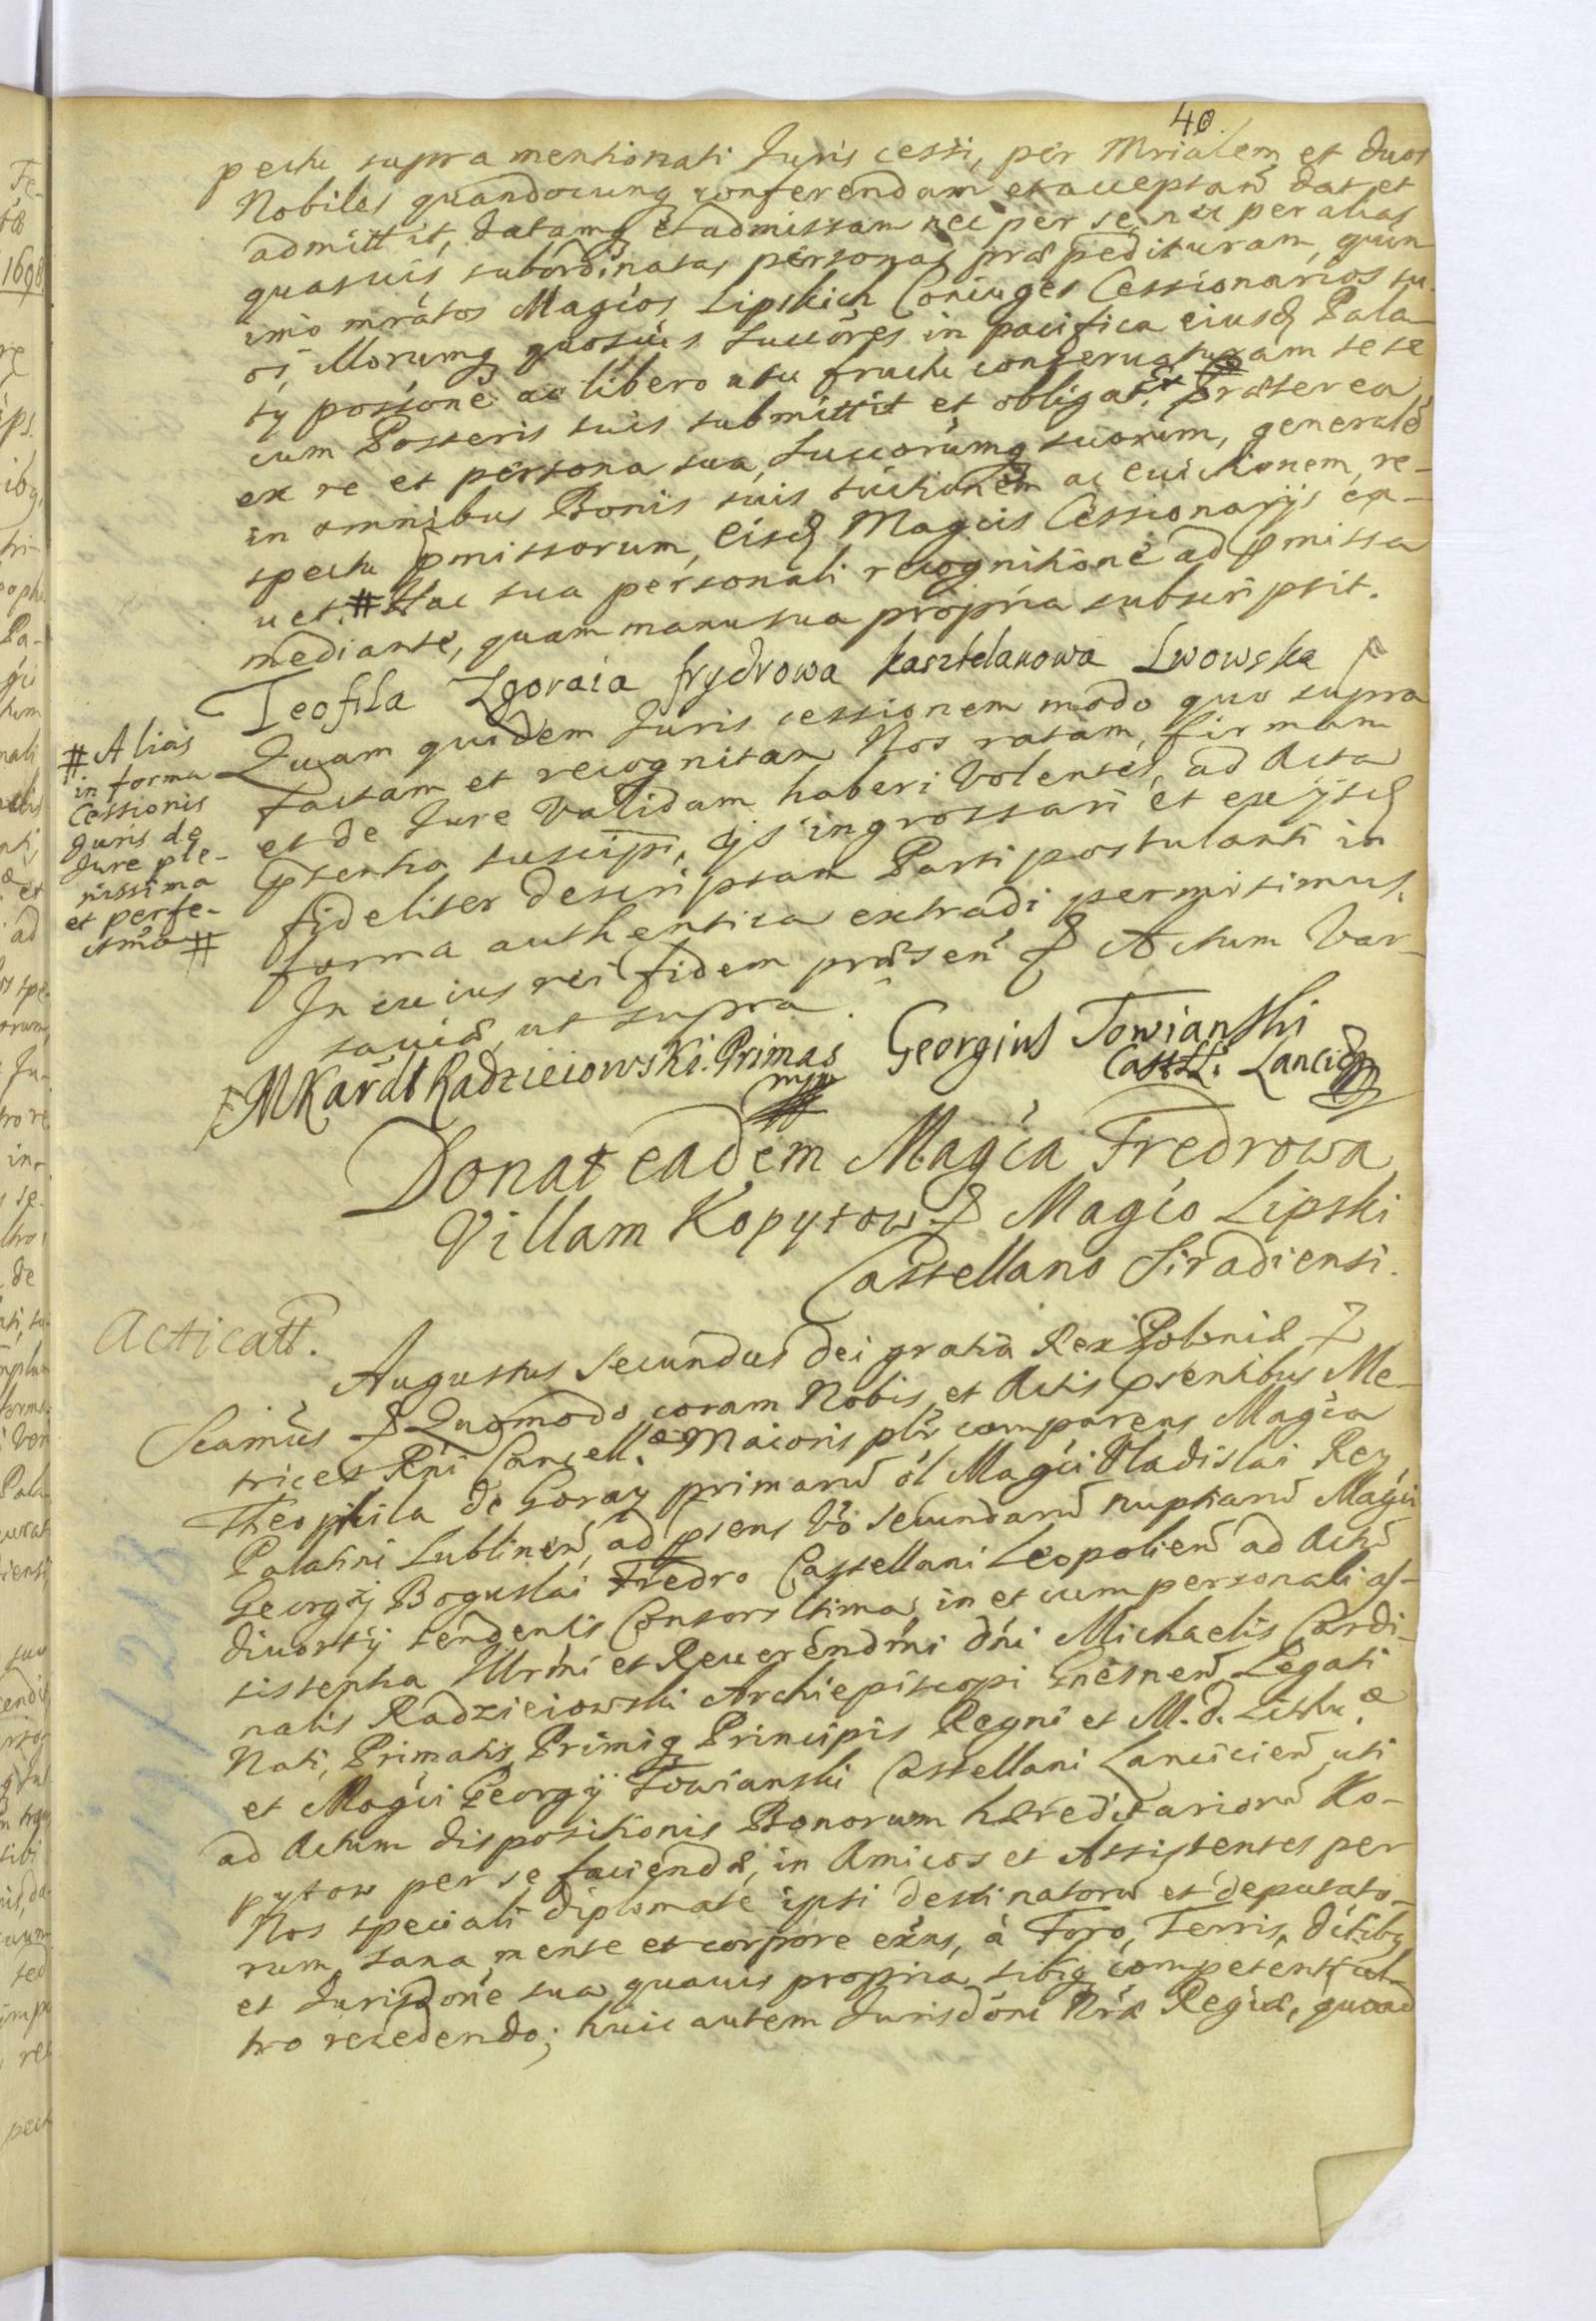 40.
pectu supra mentionati Juris cessi, per Mrialem et duos
Nobiles quandocunq conferendam et acceptan̄ dat et
admittit, datamq et admissam nec per se, nec per alias
quasuis subordinatas personas præpedituram, quin
imo mrātos Magcos Lipskich Coniuges Cessionarios su-
os, illorumq quosuis Succōres in pacifica eiusd Pala-
ty possione ac libero usu fructu conseruaturam sese
cum Posteris suis submittit et obligat. Et Præterea
ex re et persona sua, Succorumq suorum, generalē
in omnibus Bonis suis tuitionem ac euictionem, re-
spectu pmissorum, eisd Magcis Cessionarijs ca-
uet. # Hac sua personali recognitione ad pmissa
mediante, quam manu sua propria subscripsit.
Teofila Zgoraia frydrowa kasztelanowa Lwowska
# Alias
in forma
Cessionis
Juris de
Jure ple-
nissima
et perfe-
ctma #
Quam quidem Juris cessionem modo quo supra
factam et recognitam Nos ratam, firmam
et de Jure Validam haberi Volentes, ad Acta
psentia suscipi, ijs ingrossari et ex ijsd
fideliter descriptam Parti postulanti in
forma authentica extradi permisimus.
In cuius rei fidem præsen̄ & Actum Var-
sauiæ, ut supra.
MKardl Radzieiowski. Primas
mpp
Georgius Towianski
Castell. Lanci
Donat eadem Magca Fredrowa
Villam Kopytow & Magco Lipski
Castellano Siradiensi.
Acticatt.
Augustus Secundus Dei gratia Rex Poloniæ &
Scamus & Quomodo coram Nobis et Actis psentibus Me-
trices Rni Cancell. æ Maioris plr comparens Magca
Theophila de Goray primarū ol Magci Vladislai Rey
Palatini Lublinen̄, ad psens Vo secundarū nuptiarū Magci
Georgij Boguslai Fredro Castellani Leopolien̄ ad Actū
diuortij tendentis Consors ltima, in et cum personali as-
sistentia Illrmi et Reuerendmi dni Michaelis Cardi-
nalis Radzieiowski Archiepiscopi Gnesnen̄ Legati
Nati, Primatis, Primiq Principis Regni et M. D. Lithu. æ
et Magci Georgij Towianski Castellani Lancicien̄, uti
ad Actum dispositionis Bonorum hæreditariorū Ko-
pytow per se faciendæ, in Amicos et Assistentes per
Nos speciali diplomate ipsi destinatorū et deputato-
rum, sana mente et corpore exns, à Foro, Terris, dctibq
et Jurisdone sua quauis propria, sibiq competenti ul-
tro recedendo; huic autem Jurisdōni Nræ Regiæ, quoad